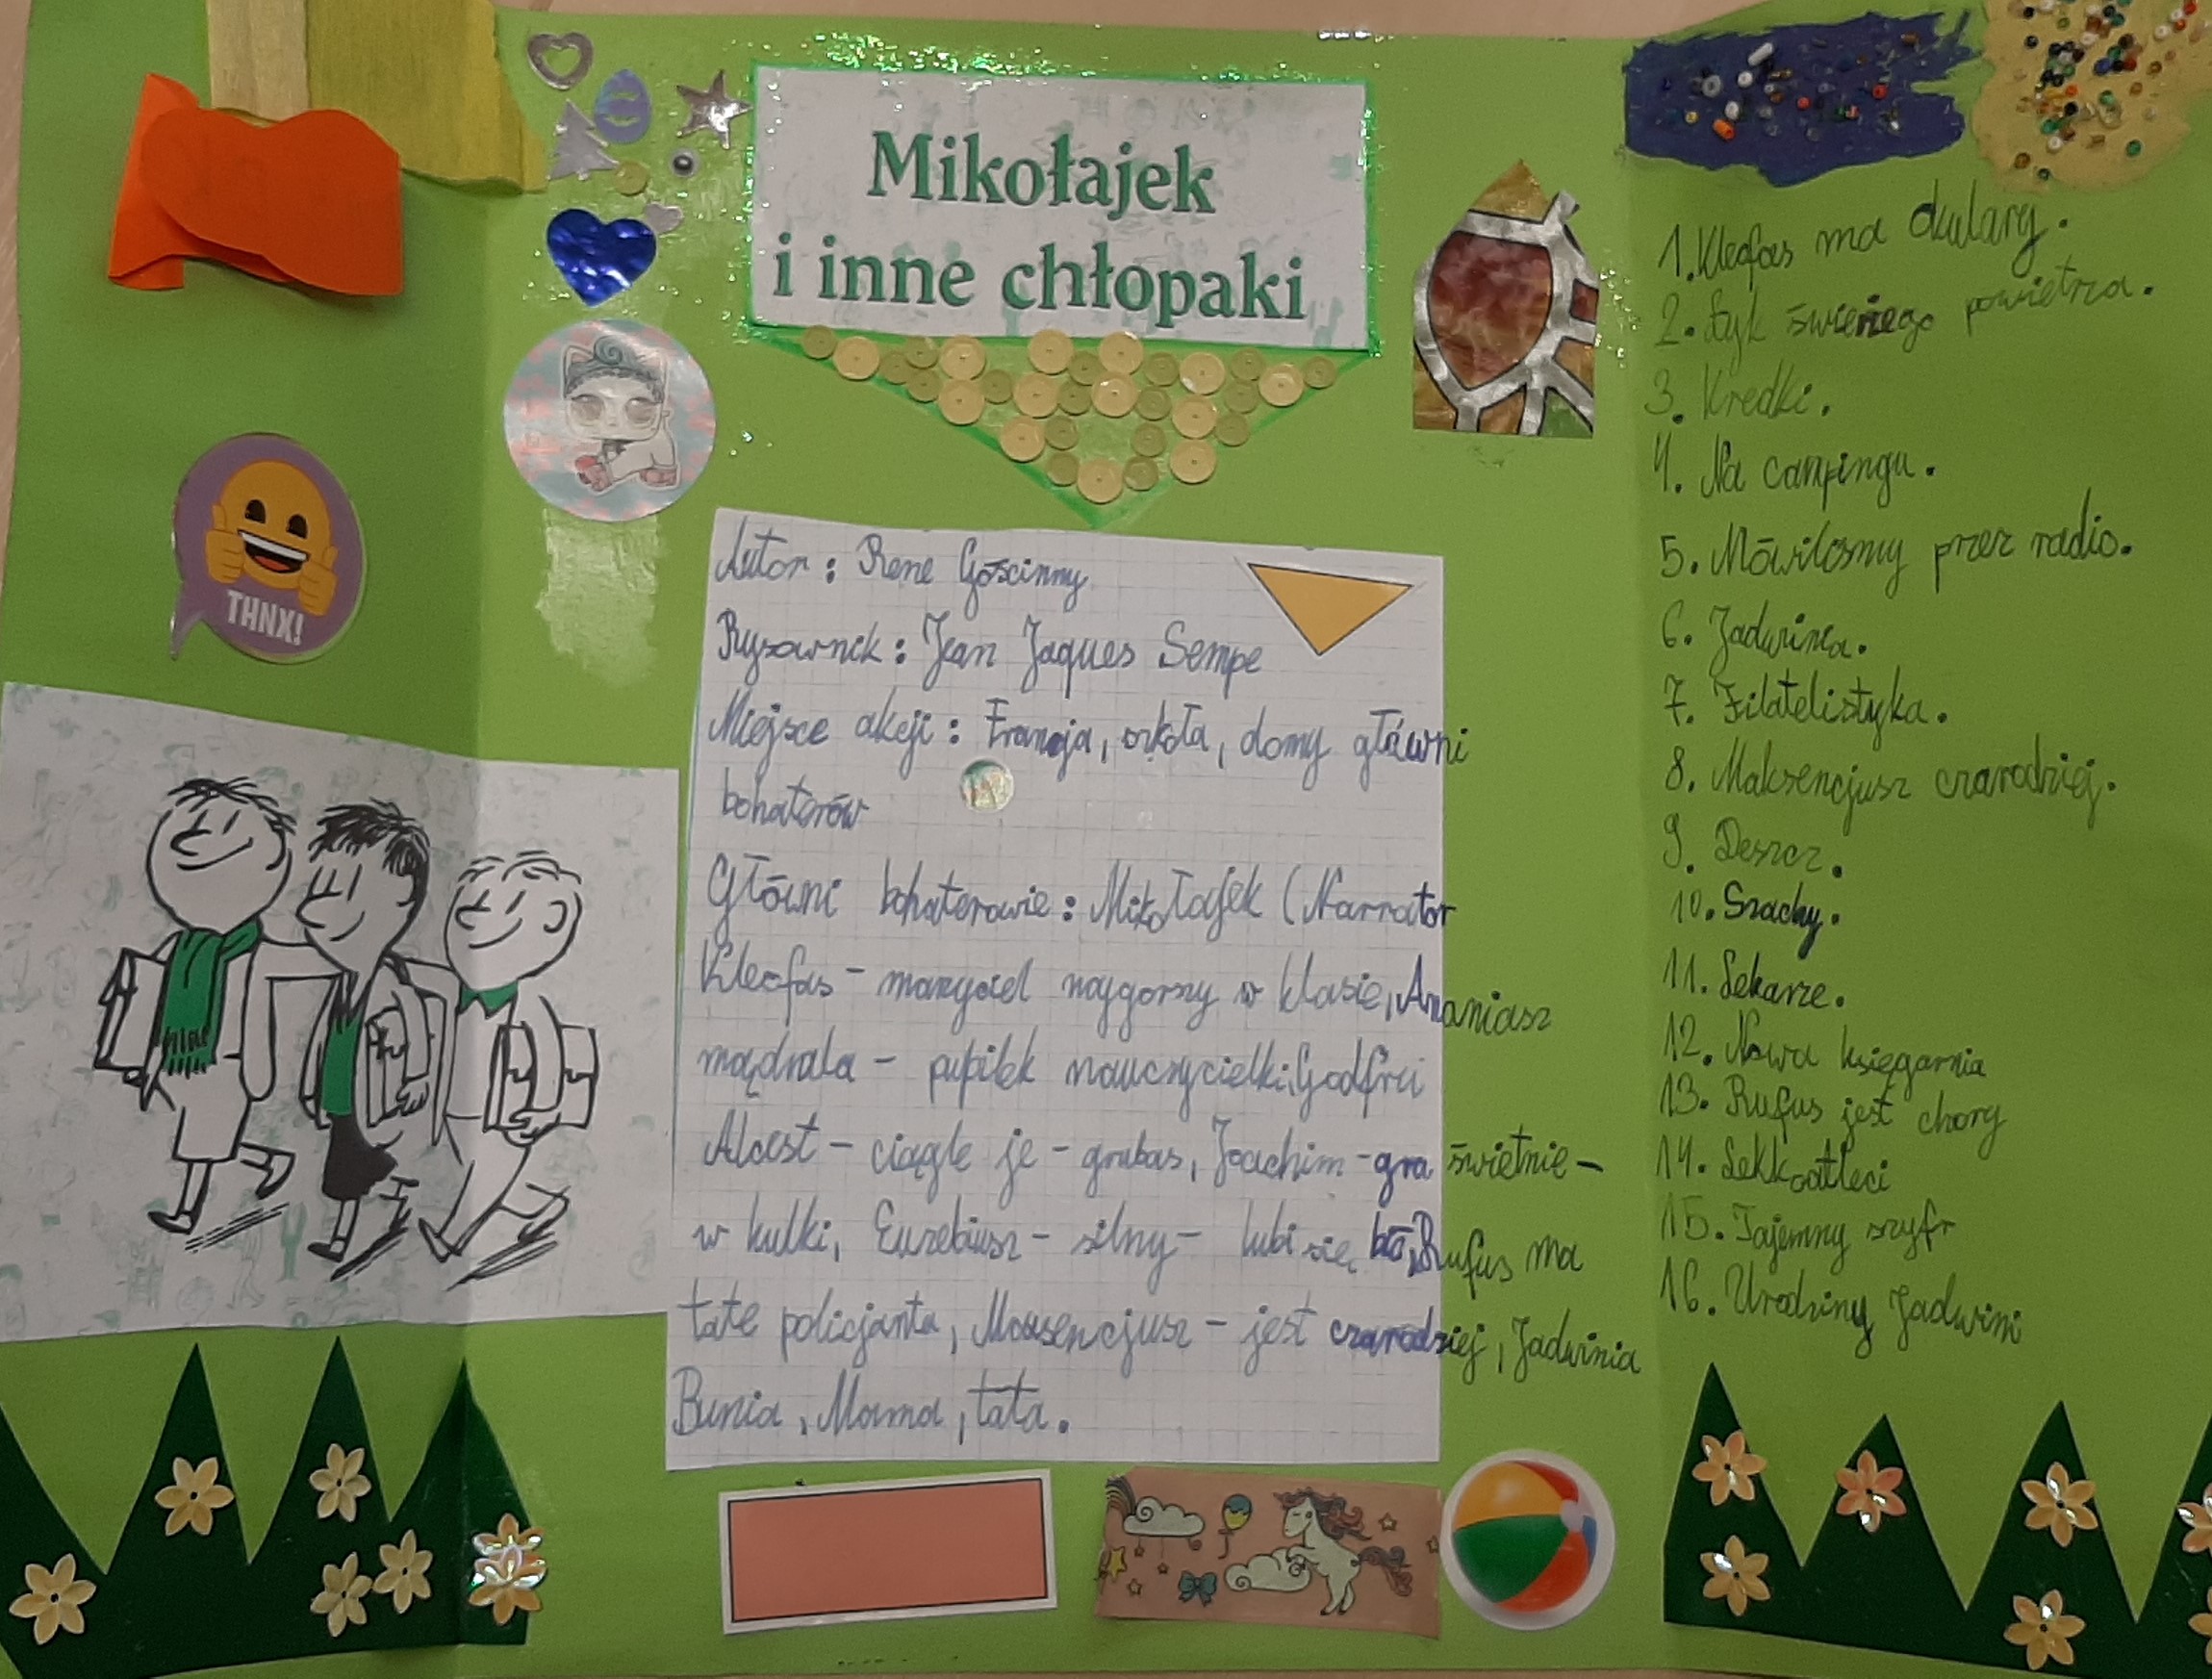 Mikołajek
i inne chłopaki
THNX!
Autor: Rene Gościnny
Rysownik: Jean Jaques Sempe
Miejsce akcji: Francja, szkoła, domy główni
bohaterów
Główni bohaterowie: Mikołajek (Narrator
Kleofas - marzyciel najgorszy w klasie, Ananiasz
mądrala - pupilek nauczycielki, Godfrid
Alcest - ciągle je - grubas, Joachim - gra świetnie -
w kulki, Euzebiusz - silny - lubi się bić, Rufus ma
tate policjanta, Maksencjusz - jest czarodziej, Jadwinia
Bunia, Mama, tata.
1. Kleofas ma okulary.
2. Łyk świeżego powietrza.
3. Kredki.
4. Na campingu.
5. Mówiliśmy przez radio.
6. Jadwinia.
7. Filatelistyka.
8. Maksencjusz czarodziej.
9. Deszcz.
10. Szachy.
11. Lekarze.
12. Nowa księgarnia
13. Rufus jest chory
14. Lekkoatleci
15. Tajemny szyfr
16. Urodziny Jadwini